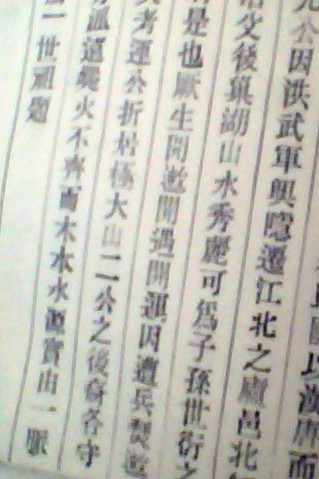 漢唐而
公因洪武軍興隱遷江北之廬邑北
父後巢湖山水秀麗可爲子孫世衍之
是也厥生開邀開遇開運因遭兵燹邀
考運公折居極大山二公之後裔各守
派遠爨火不齊而木本水源實由一脈
一世祖題